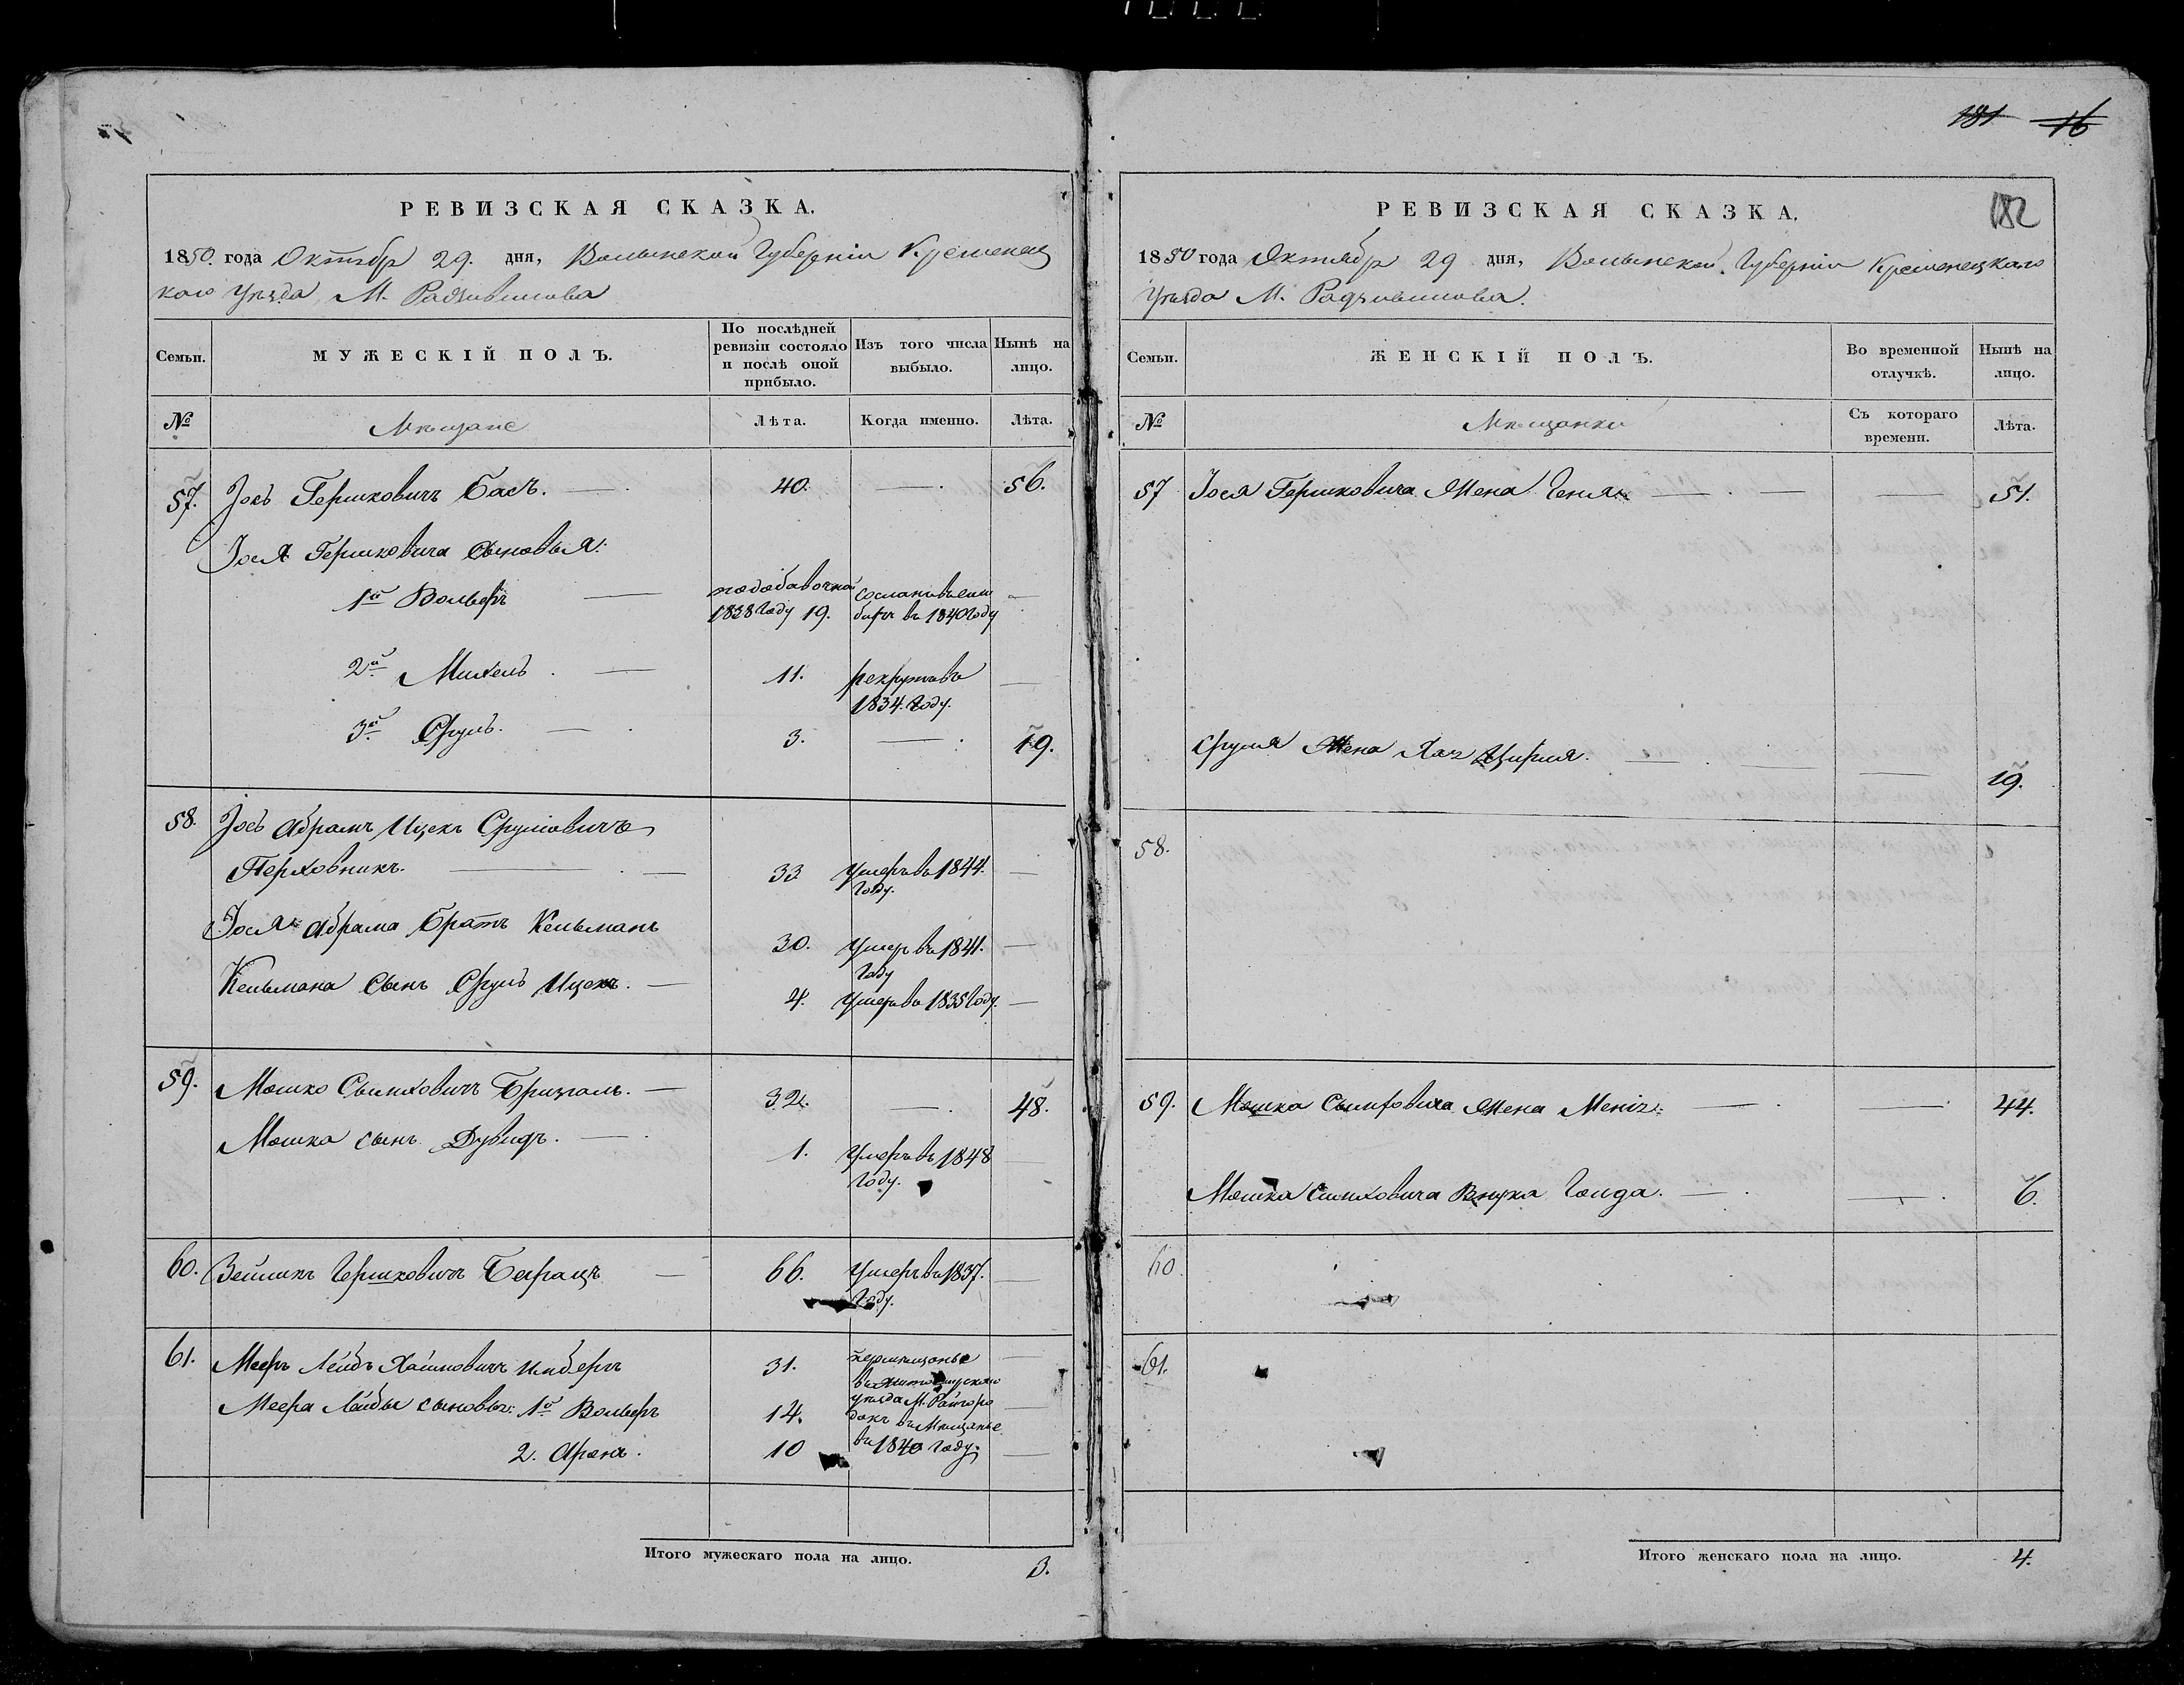 181 16
РЕВИЗСКАЯ СКАЗКА.
1850. года Октябр 29. дня, Волынской Губерніи Кременец
кого уѣзда М. Радзивилова
Семьи.
МУЖЕСКІЙ ПОЛЪ.
По послѣдней
ревизіи состояло
и послѣ оной
прибыло.
Изъ того числа
выбыло.
Нынѣ на
лицо.
№
Мѣщане
Лѣта.
Когда именно.
Лѣта.
57. Іосъ Гершковичъ Басъ. 40. 56.
Іося Гершковича сыновья:
1й Вольфъ
1838 Году 19. в 1840 Году
2й Михель. 11. рекрутовъ
1834. Году.
3й Сруль. 3. 19.
58. Іосъ Абрамъ Ицекъ Срулiовичъ
Перховникъ. 33 Умеръ в 1844.
Году.
Іося Абрама братъ Кельманъ 30. Умеръ въ 1841.
Году
Кельмана сынъ Сруль Ицекъ. 4. Умеръ в 1835 Году.
59. Мошко Сымховичъ 32. 48.
Мошка сынъ Дувидъ. 1. Умеръ въ 1848
Году.
60. Зейликъ Гершковичъ 66. Умеръ в 1837.
Году.
61. Мееръ Лейбъ Хаимовичъ Имберъ 31.
Меера Лейбы сыновья: 1й Вольфъ 14. уѣзда М. Райгоро
докъ въ Мѣщанье
2. Аронъ. 10 въ 1840 Году.
Итого мужескаго пола на лицо. 3.
РЕВИЗСКАЯ СКАЗКА. 182
1850 года Октября 29 дня, Волынской Губерніи Кременецкаго
Уѣзда М. Радзивилова.
Семьи.
ЖЕНСКІЙ ПОЛЪ.
Во временной
отлучкѣ.
Нынѣ на
лицо.
№
Мѣщанки
Съ котораго
времени.
Лѣта.
57 Іося Гершковича Жена Геня 51.
Сруля Жена Хая Цирля. 19.
58.
59. Мошка Сымховича Жена 44.
Мошка Сымховича Внучка Голда. 6.
60
61.
Итого женскаго пола на лицо. 4.